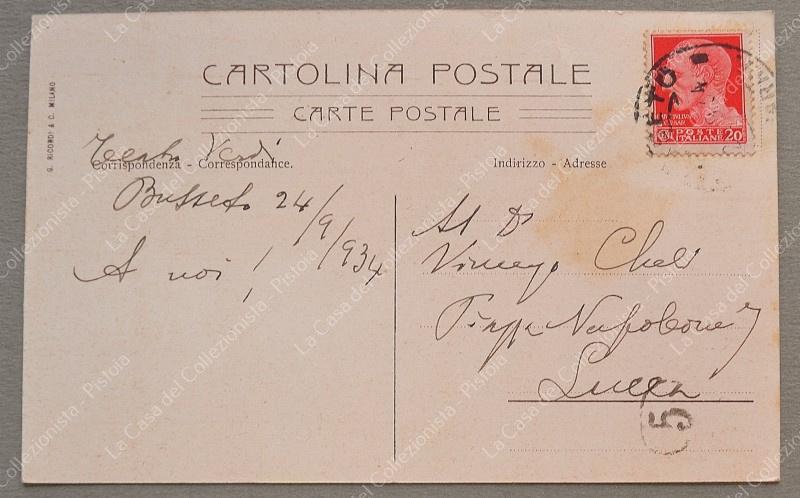 CARTOLINA POSTALE
CARTE POSTALE
G. RICORDI & C. MILANO
Teatro Verdi
Corrispondenza - Correspondance.
Busseto 24/9/934
A noi!
Indirizzo - Adresse
Al Dr
Vincenzo Cheli
Piazza Napoleone 7
Lucca
POSTE
ITALIANE 20
5
La Casa del Collezionista - Pistoia